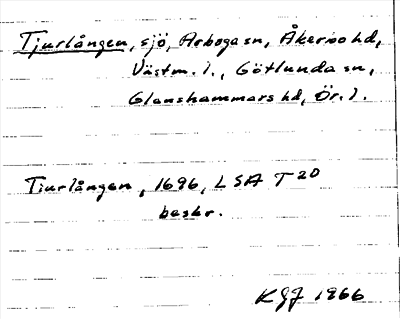 Tjurlången, sjö, Arboga sn, Åkerbo hd,
Västm. l., Götlunda sn,
Glanshammars hd, Ör. l.
Tiurlången, 1696, LSA T 20
beskr.
KGJ 1966